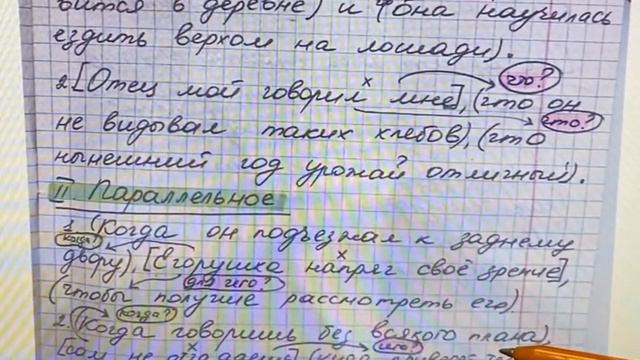 вится в деревне) и (она научилась
ездить верхом на лошади).
что?
2. [Отец мой говорил мне], (что он
что?
не видывал таких хлебов), (что
нынешний год урожай отличный).
II. Параллельное
1. (Когда он подъезжал к заднему
когда?
двору), [Егорушка напряг своё зрение],
для чего?
(чтобы получше рассмотреть его).
когда?
2. (Когда говоришь без всякого плана),
что?
не